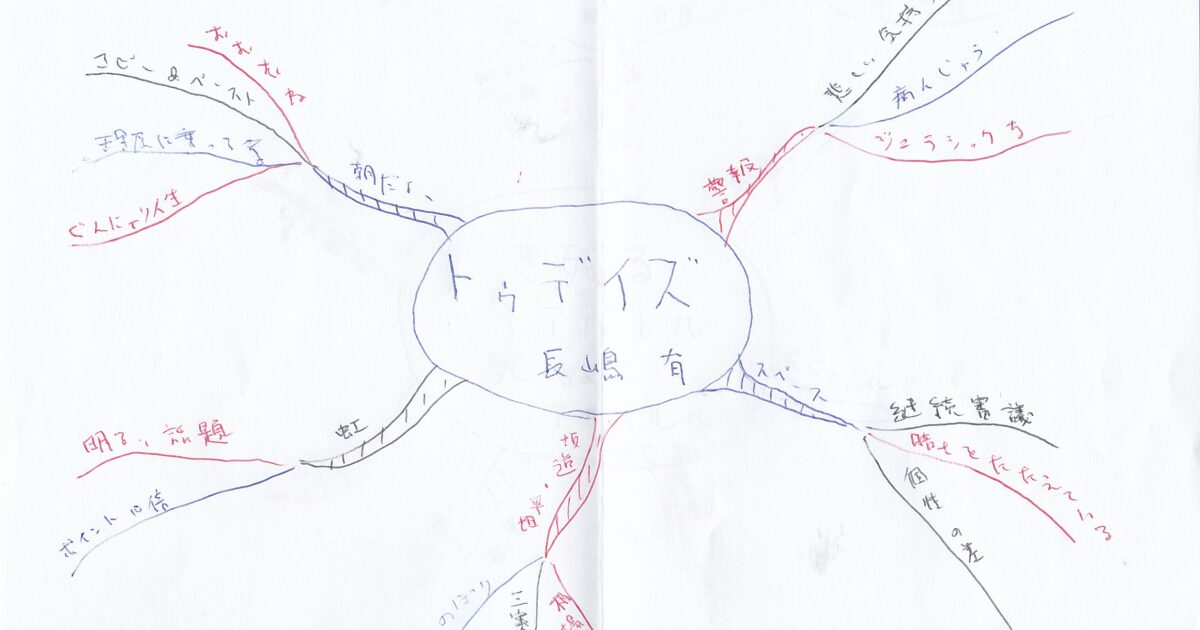 トゥデイズ
長嶋 有
警報
悲しい気持
病んじゃう
ジュラシックち
スペース
継続審議
晴もをたたえている
個性の差
坂道、平坦
のぼり
三実
相場
虹
明るい話題
ポイント10倍
朝だよ、
おおむね
コピー&ペースト
に乗って
ぐんにゃり人生